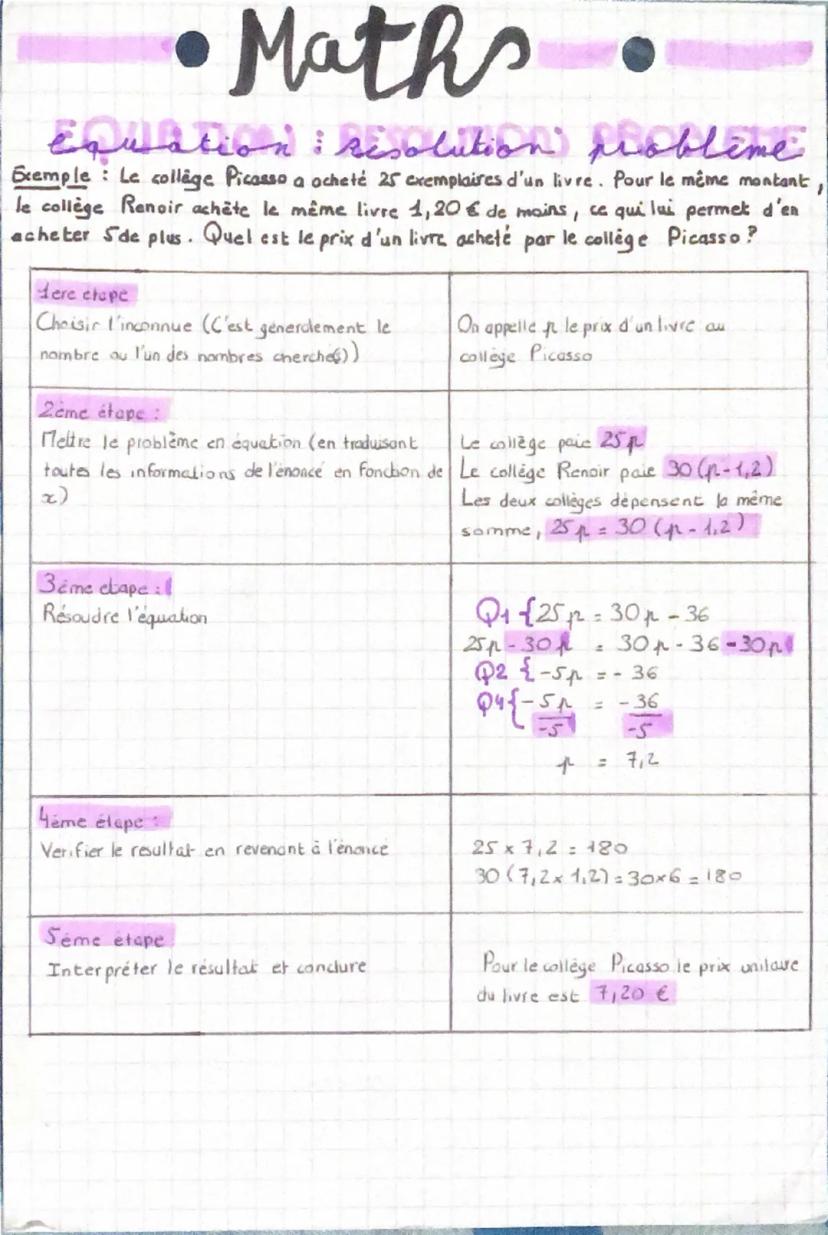 Maths
équation : résolution problème
Exemple : Le collège Picasso a acheté 25 exemplaires d'un livre. Pour le même montant,
le collège Renoir achète le même livre 1,20 € de moins, ce qui lui permet d'en
acheter 5 de plus. Quel est le prix d'un livre acheté par le collège Picasso ?
1ere étape
Choisir l'inconnue (C'est generalement le
nombre ou l'un des nombres cherché(s))
On appelle p le prix d'un livre au
collège Picasso
2ème étape :
Mettre le problème en équation (en traduisant
toutes les informations de l'énoncé en fonction de
x)
Le collège paie 25p
Le collège Renoir paie 30(p-1,2)
Les deux collèges dépensent la même
somme, 25p = 30 (p - 1,2)
3ème etape :
Résoudre l'équation
Q1 {25p = 30p - 36
25p - 30p = 30p - 36 - 30p
Q2 {-5p = - 36
Q4 {-5p = -36
-5 -5
p = 7,2
4ème étape :
Verifier le resultat en revenant à l'énoncé
25 x 7,2 = 180
30 (7,2 x 1,2) = 30x6 = 180
5ème étape
Interpréter le résultat et conclure
Pour le collège Picasso le prix unitaire
du livre est 7,20 €